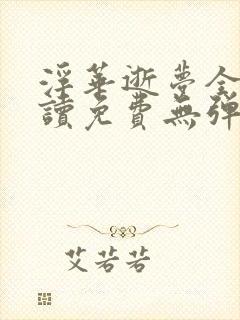 淫華逝夢全
讀免費無彈
艾若若